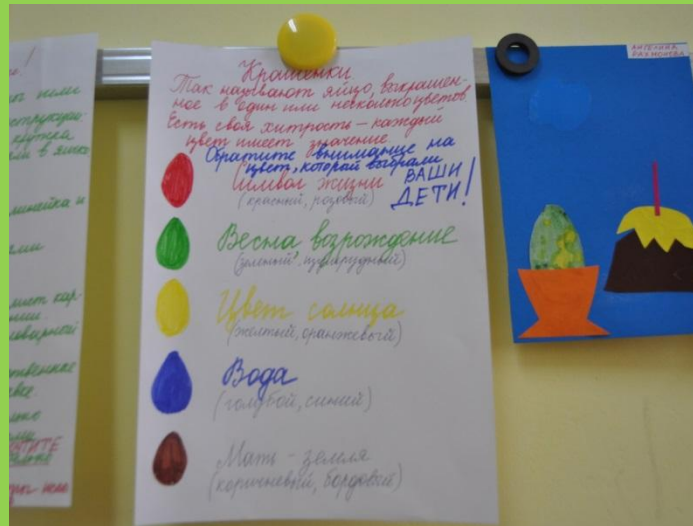 Крашенки.
Так называют яйцо, выкрашен-
ное в один или несколько цветов.
Есть своя хитрость – каждый
цвет имеет значение.
Обратите внимание на
цвет, который выбрали
ВАШИ
ДЕТИ!
Символ жизни
(красный, розовый)
Весна возрождение
(зеленый, изумрудный)
Цвет солнца
(желтый, оранжевый)
Вода
(голубой, синий)
Мать - земля
(коричневый, бордовый)
линейка и
АНГЕЛИНА